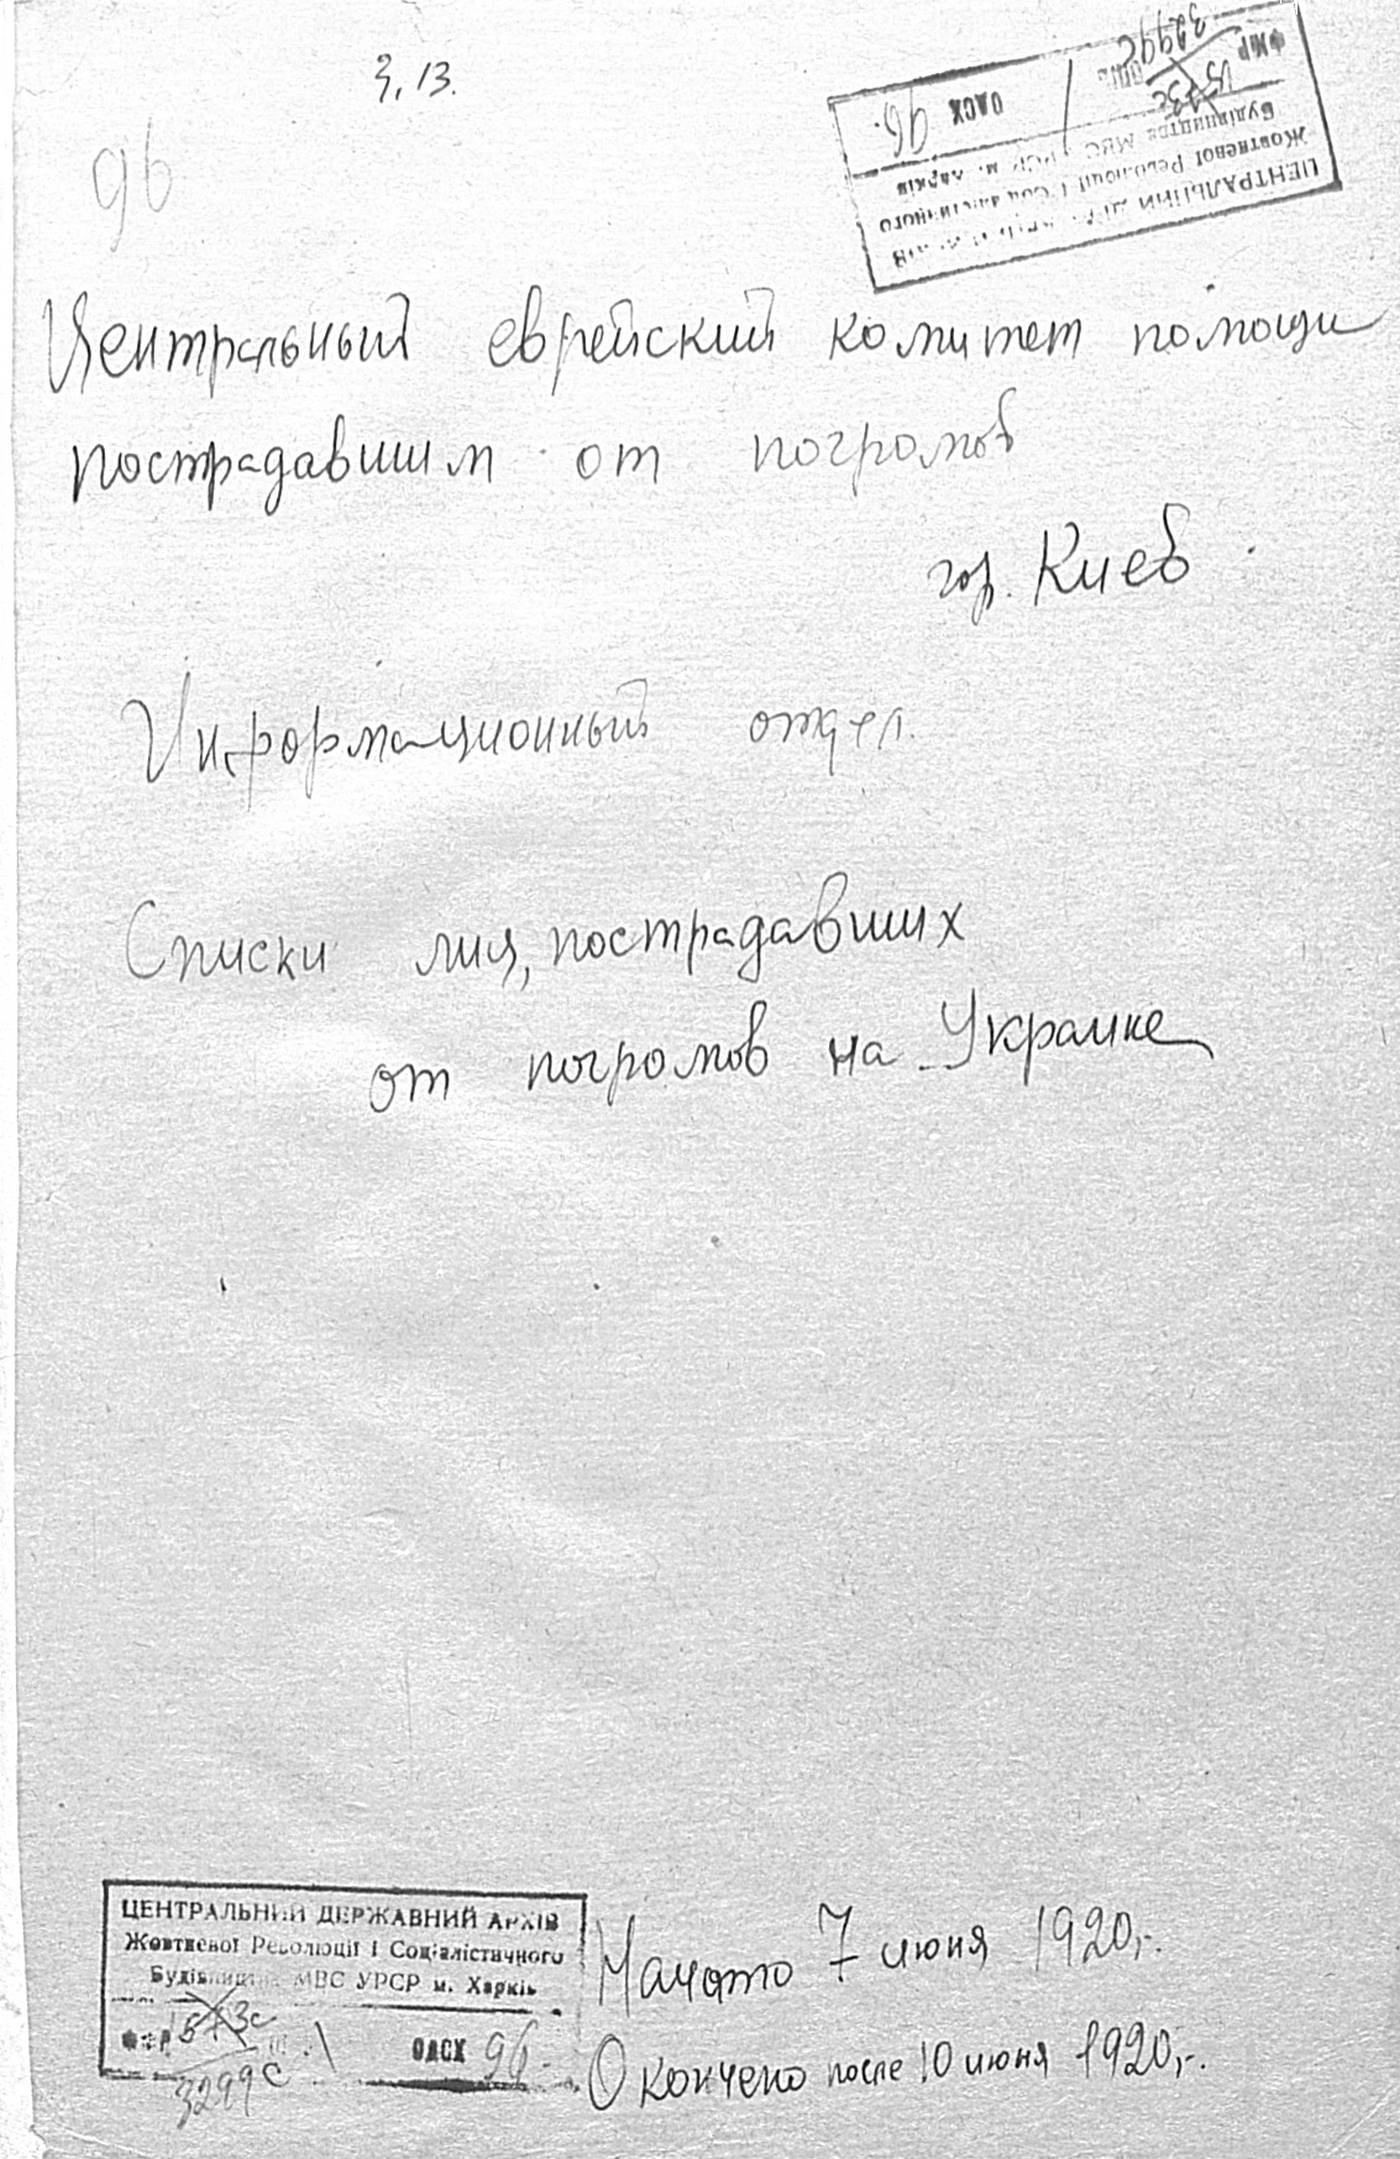 З, 13.
96
ЦЕНТРАЛЬНИЙ АРХІВ
Жовтневої Революції і Соціалістичного
Будівництва МВС УРСР м. Харків
ФНР 1573с ОП. 1 ОДСХ 96.
3299с
Центральный еврейский комитет помощи
пострадавшим от погромов
гор. Киев
Информационный отдел.
Списки лиц, пострадавших
от погромов на Украине
ЦЕНТРАЛЬНИЙ ДЕРЖАВНИЙ АРХІВ
Жовтневої Революції і Соціалістичного
Будівництва МВС УРСР м. Харків
1573с 1 ОДСХ 96.
3299с
Начато 7 июня 1920,-.
Окончено после 10 июня 1920,-.